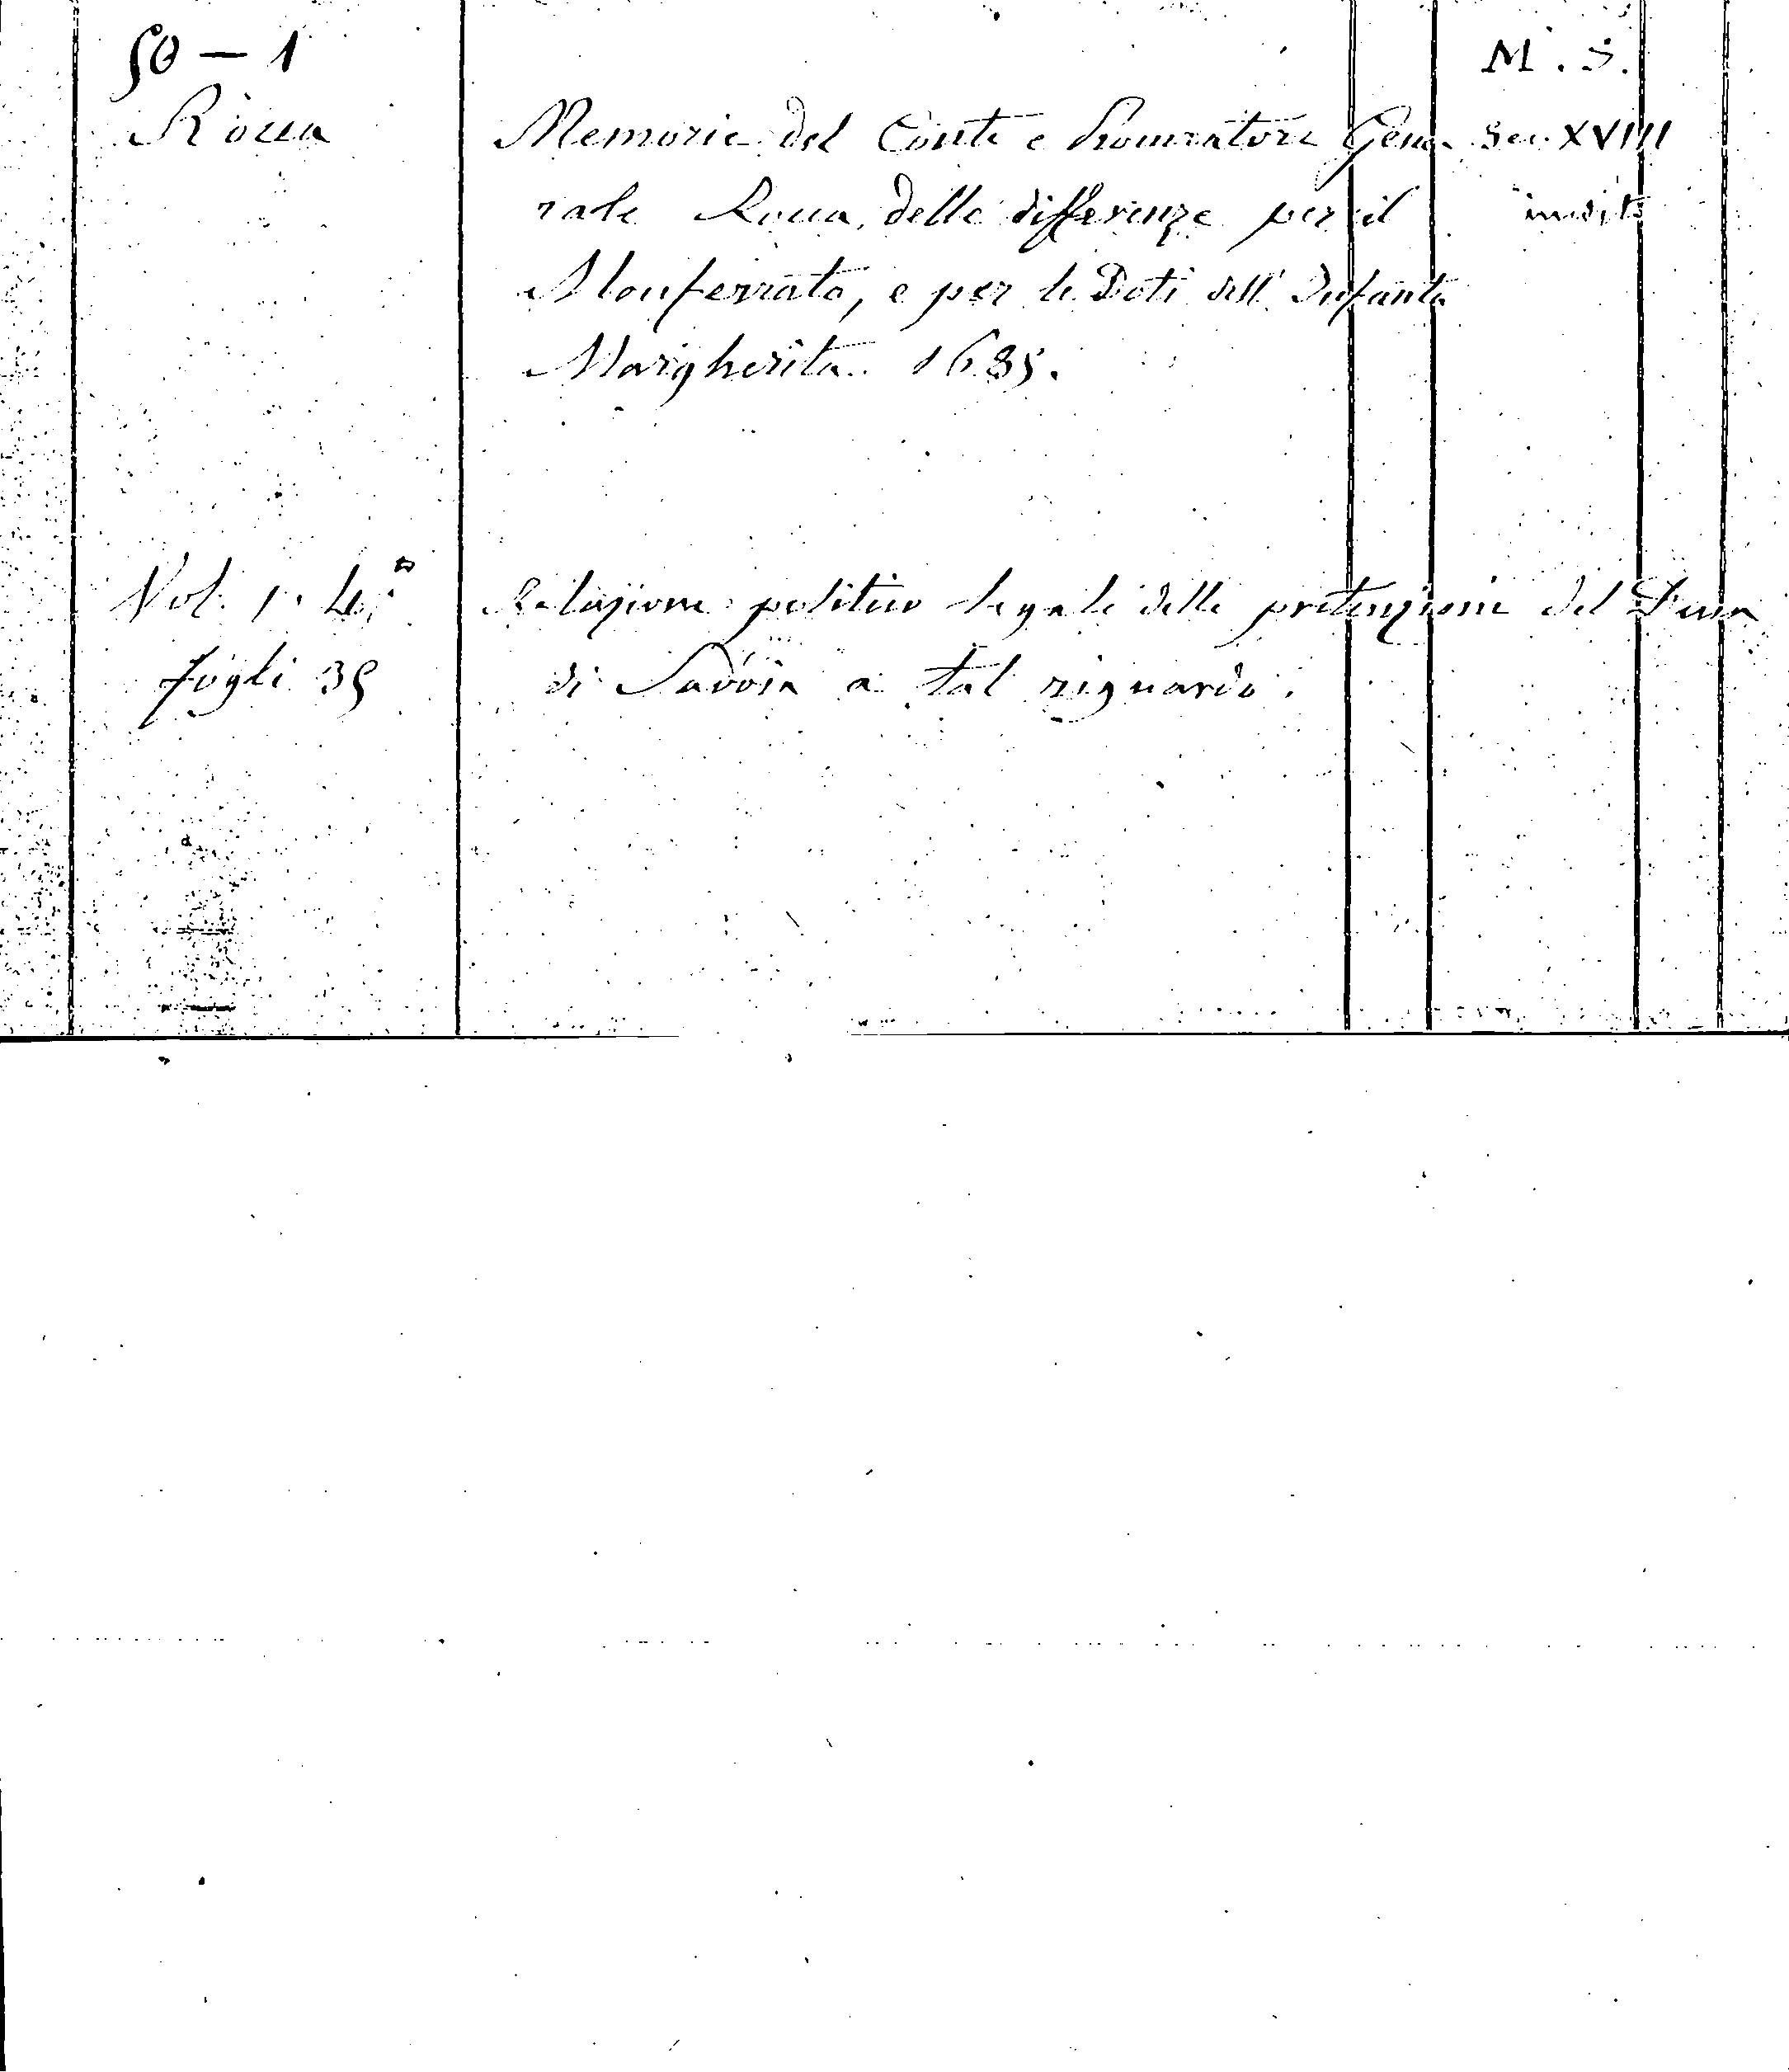 50 – 1
M. S.
Rocca
Memorie del Conte e Procuratore Gene- Sec. XVIII
rale Rocca, delle differenze per il inedito
Monferrato, e per le Doti dell' Infanta
Margherita. 1635.
Vol. 1. 4.to Relazione politico legale delle pretenzioni del Duca
fogli 35 di Savoia a tal riguardo.